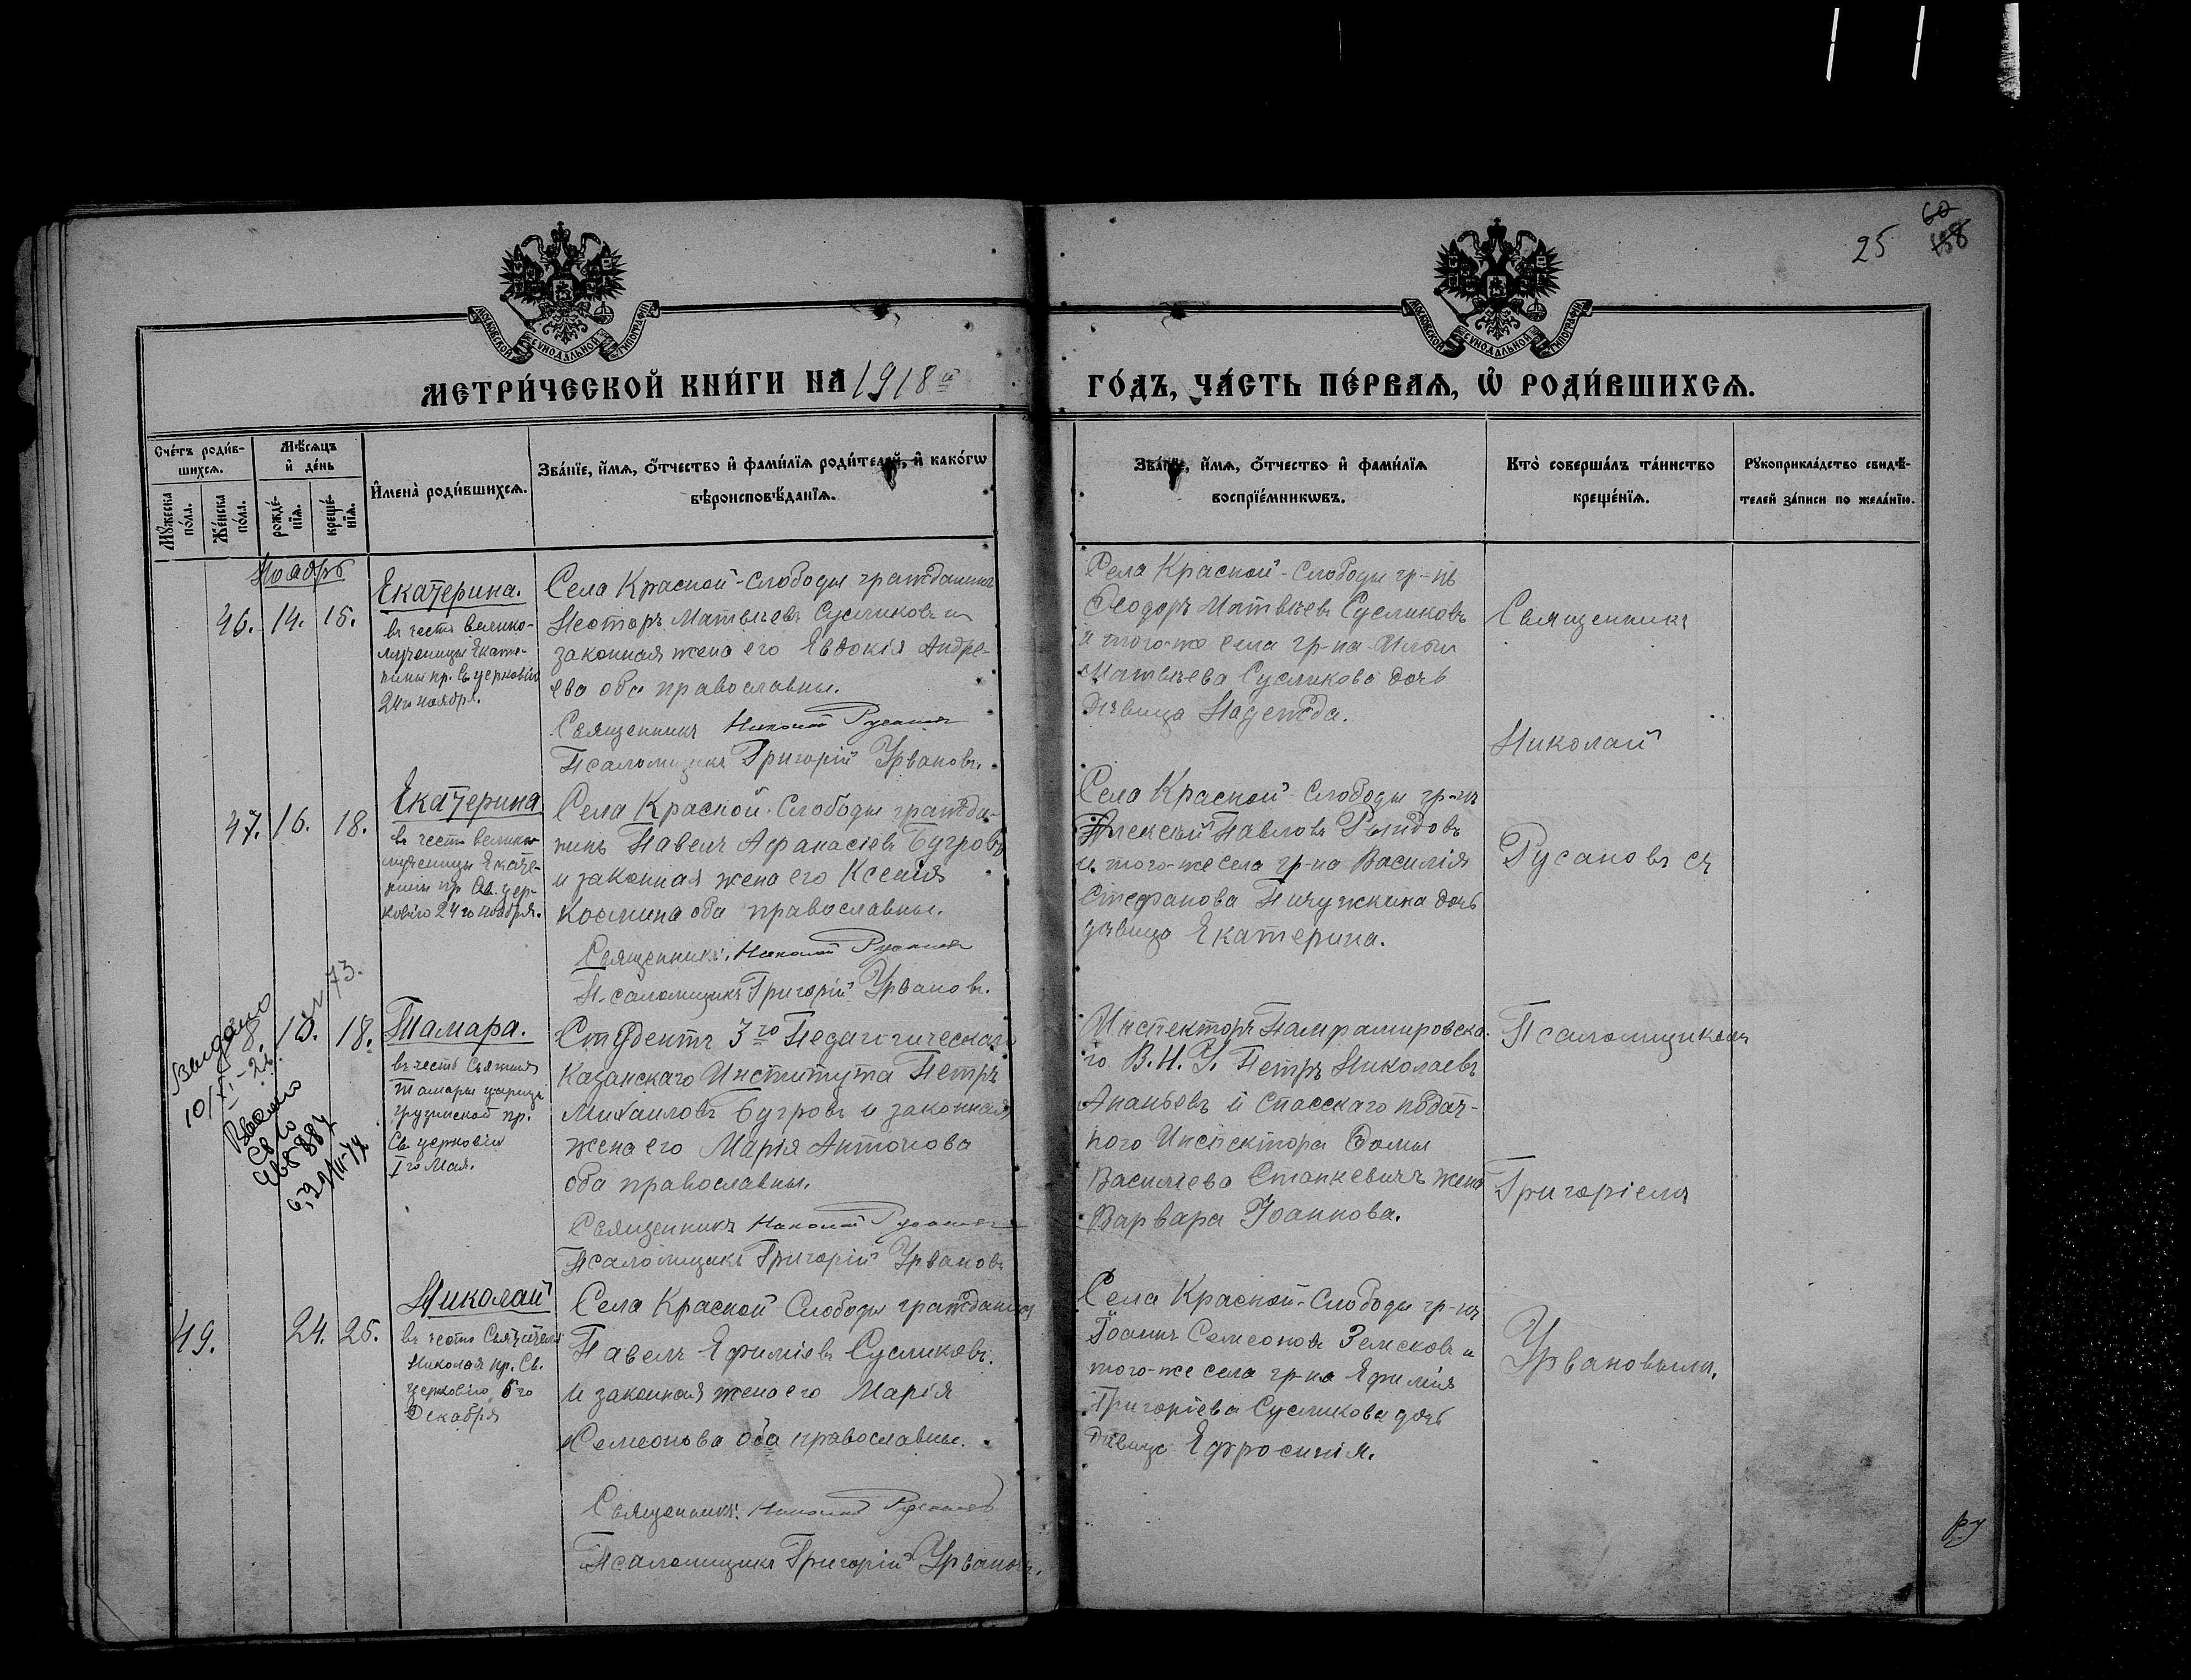 25
60
МОСКОВСКОЙ СѴНОДАЛЬНОЙ ТИПОГРАФІИ
МОСКОВСКОЙ СѴНОДАЛЬНОЙ ТИПОГРАФІИ
МЕТРИ́ЧЕСКОЙ КНИ́ГИ НА 1918 й
ГО́ДЪ, ЧА́СТЬ ПЕ́РВАѦ, Ѡ҆ РОДИ́ВШИХСѦ.
Сче́тъ роди́в-
шихсѧ.
Мѣ́сѧцъ
и҆ де́нь
Мꙋ́жеска
по́ла.
Же́нска
по́ла.
рожде́-
нїѧ.
креще́-
нїѧ.
И҆мена̀ роди́вшихсѧ.
Зва́нїе, и҆́мѧ, ѻ҆́тчество и҆ фами́лїѧ роди́телей, и҆ како́гѡ
вѣроисповѣ́данїѧ.
Зва́нїе, и҆́мѧ, ѻ҆́тчество и҆ фами́лїѧ
воспрїе́мникѡвъ.
Кто̀ соверша́лъ та́инство
креще́нїѧ.
Рꙋкоприкла́дство свидѣ́-
телей за́писи по жела́нїю.
Ноябрь
46. 14. 15.
Екатерина.
въ честь велико-
мученицы Екате-
рины пр. Св. церковію
24го ноября.
Села Красной-Слободы гражданинъ
Несторъ Матвѣевъ Сусликовъ и
законная жена его Евдокія Андре-
ева оба православны.
Священникъ Николай Русановъ
Псаломщикъ Григорій Урвановъ.
Села Красной-Слободы гр-нъ
Ѳеодоръ Матвѣевъ Сусликовъ
и того-же села гр-на
Матвѣева Сусликова дочь
дѣвица Надежда.
47. 16. 18.
Екатерина
въ честь велико-
мученицы Екате-
рины пр. Св. цер-
ковію 24го ноября.
Села Красной-Слободы гражда-
нинъ Павелъ Аѳанасіевъ Бугровъ
и законная жена его Ксенія
Космина оба православны.
Священникъ: Николай Русановъ
Псаломщикъ Григорій Урвановъ.
Села Красной-Слободы гр-нъ
Алексѣй Павловъ
и того-же села гр-на Василія
Стефанова Пичужкина дочь
дѣвица Екатерина.
Выдано
48. 18.
Тамара.
въ честь Святыя
Тамары царицы
грузинской пр.
Св. церковію
1го Мая.
Студентъ 3го Педагогическаго
Казанскаго Института Петръ
Михаиловъ Бугровъ и законная
жена его Марія Антонова
оба православны.
Священникъ Николай Русановъ
Псаломщикъ Григорій Урвановъ
Инспекторъ
го В.Н.У. Петръ Николаевъ
Ананьевъ и Спасскаго подат-
ного Инспектора Ѳомы
Васильева Станкевичъ жена
Варвара Іоаннова.
49. 24. 25.
Николай
въ честь Святителя
Николая пр. Св.
церковію 6го
Декабря
Села Красной Слободы гражданинъ
Павелъ Ефиміевъ Сусликовъ.
и законная жена его Марія
Семеонова оба православны.
Священникъ: Николай Русановъ
Псаломщикъ Григорій Урвановъ.
Села Красной-Слободы гр-нъ
Іоаннъ Семеоновъ Земсковъ и
того-же села гр-на Ефимія
Григоріева Сусликова дочь
дѣвица Ефросинія.
Священникъ
Николай
Русановъ съ
Псаломщикомъ
Григоріемъ
Урвановымъ.